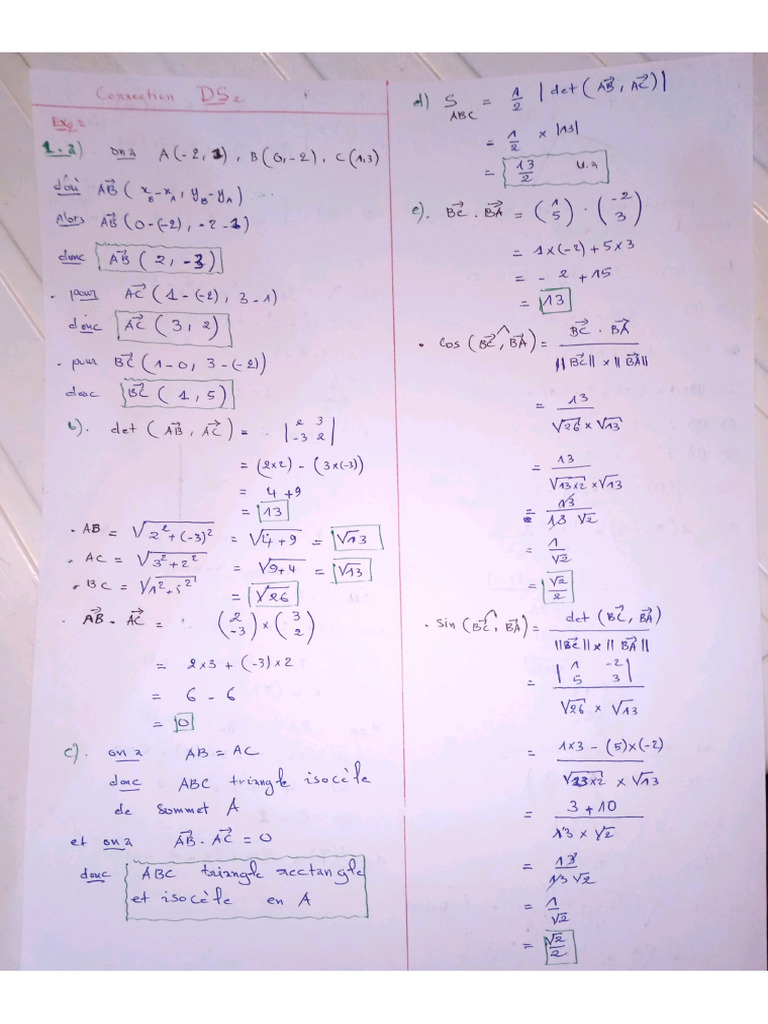 Correction DS2
Ex2
1.a) on a A(-2, 1), B(0,-2), C(1,3)
d'où AB⃗ ( x_B - x_A, y_B - y_A )
Alors AB⃗ (0-(-2), -2-1)
donc AB⃗ (2, -3)
. pour AC⃗ (1-(-2), 3-1)
donc AC⃗ (3, 2)
. pour BC⃗ (1-0, 3-(-2))
donc BC⃗ (1, 5)
b). det (AB⃗, AC⃗) = |2 3|
|-3 2|
= (2x2) - (3x(-3))
= 4+9
= 13
. AB = √(2²+(-3)²) = √(4+9) = √13
. AC = √(3²+2²) = √(9+4) = √13
. BC = √(1²+5²) = √26
. AB⃗ . AC⃗ = (2 -3) x (3 2)
= 2x3 + (-3)x2
= 6 - 6
= 0
c). on a AB = AC
donc ABC triangle isocèle
de sommet A
et on a AB⃗ . AC⃗ = 0
donc ABC triangle rectangle
et isocèle en A
d) S_ABC = 1/2 |det(AB⃗, AC⃗)|
= 1/2 x |13|
= 13/2 u.a
e). BC⃗ . BA⃗ = (1 5) . (-2 3)
= 1x(-2)+5x3
= - 2 + 15
= 13
. cos (BC⃗, BA⃗) = BC⃗ . BA⃗ / ||BC⃗|| x ||BA⃗||
= 13 / √26 x √13
= 13 / √13x2 x √13
= 13 / 13 √2
= 1/√2
= √2/2
. sin (BC⃗, BA⃗) = det (BC⃗, BA⃗) / ||BC⃗|| x ||BA⃗||
= |1 -2|
|5 3| / √26 x √13
= 1x3 - (5)x(-2) / √13x2 x √13
= 3 + 10 / 13 x √2
= 13 / 13 √2
= 1/√2
= √2/2